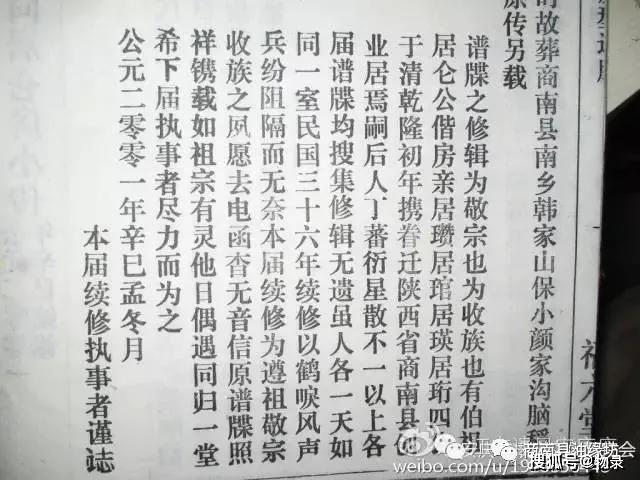 故葬商南县南乡韩家山保小颜家沟脑
原传另载
谱牒之修辑为敬宗也为收族也有伯祖
居仑公偕房亲居瓒居琯居瑛居珩四
于清乾隆初年携眷迁陕西省商南县
业居焉嗣后人丁蕃衍星散不一以上各
届谱牒均搜集修辑无遗虽人各一天如
同一室民国三十六年续修以鹤唳风声
兵纷阻隔而无奈本届续修为遵祖敬宗
收族之夙愿去电函查无音信原谱牒照
祥镌载如祖宗有灵他日偶遇同归一堂
希下届执事者尽力而为之
公元二零零一年辛巳孟冬月
本届续修执事者谨誌
weibo.com/u/19
搜狐号@杨录